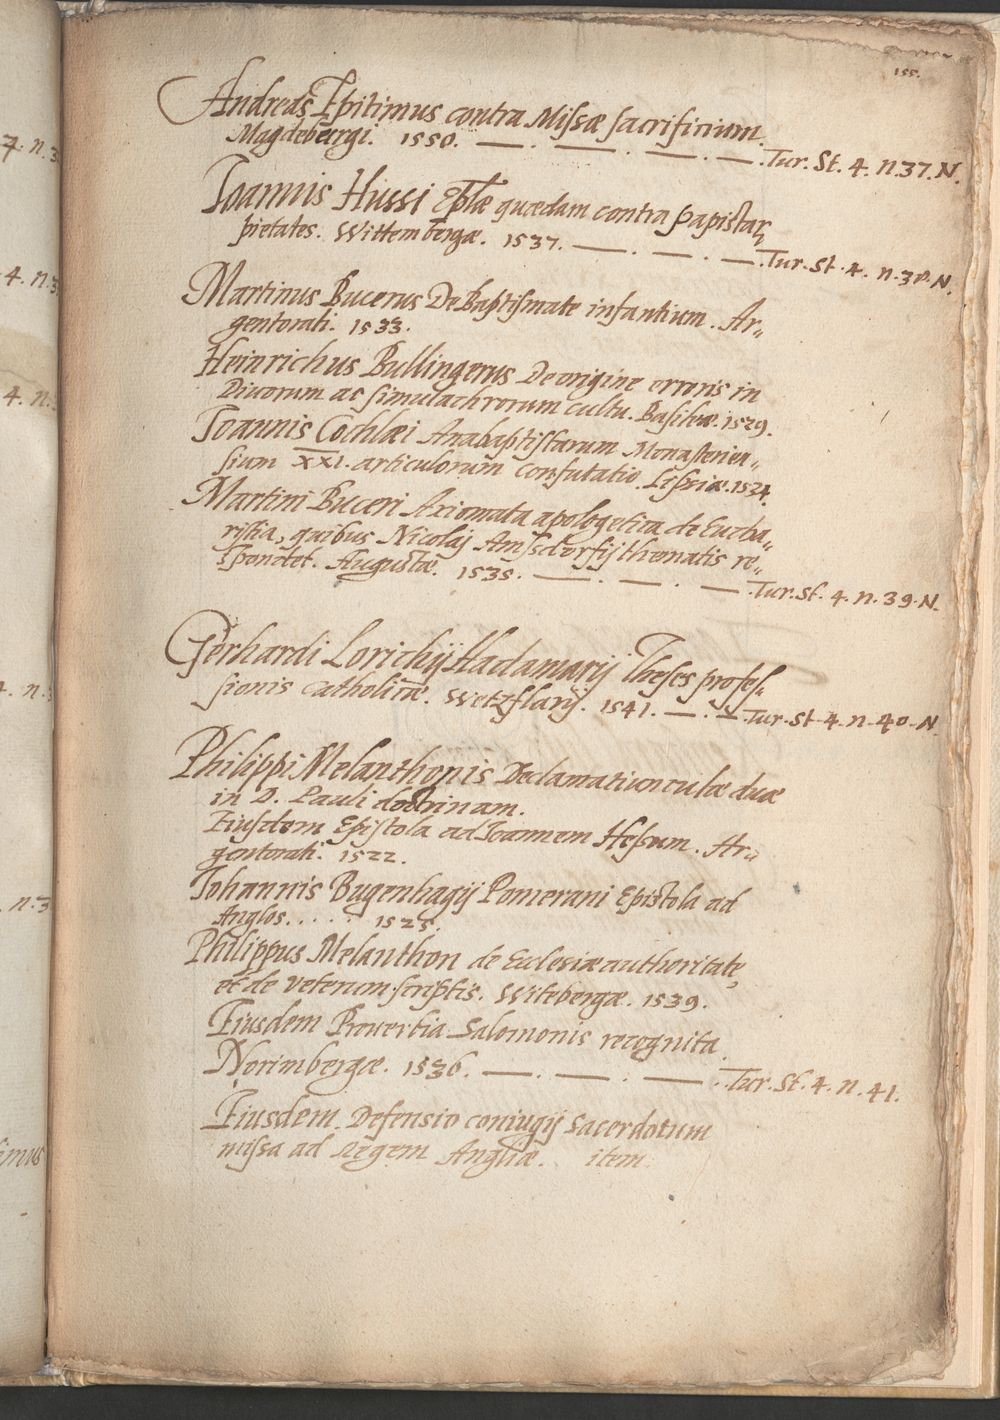 155.
Andreas Epitimus contra Missæ sacrificium.
Magdebergi. 1550. — . — . — . — . Tur. St. 4. n. 37. N.
Joannis Hussi Eplæ quædam contra Papistar,
pietates. Wittembergæ. 1537. — . — . — . Tur. St. 4. n. 38. N.
Martinus Bucerus De Baptismate infantium. Ar„
gentorati. 1533.
Heinrichus Bullingerus De origine erroris in
Divorum ac simulachrorum cultu. Basileæ. 1529.
Joannis Cochlæi Anabaptistarum Monasterien„
sium XXI. articulorum confutatio. Lipsiæ. 1534.
Martini Buceri Axiomata apologetica de Eucha„
ristia, quibus Nicolaj Amsdorfij thematis re„
spondet. Augustæ. 1535. — . — . — . Tur. St. 4. n. 39. N.
Gerhardi Lorichij Hadamarij Theses profes„
sionis catholicæ. Wetzflarij. 1541. — . — . Tur. St. 4. n. 40. N
Philippi Melanthonis Declamatiunculæ duæ
in D. Pauli doctrinam.
Eiusdem Epistola ad Joannem Hessum. Ar„
gentorati. 1522.
Johannis Bugenhagij Pomerani Epistola ad
Anglos. . . . . 1525.
Philippus Melanthon de Ecclesiæ authoritate,
et de veterum scriptis. Witebergæ. 1539.
Eiusdem Proverbia Salomonis recognita.
Norimbergæ. 1536. — . — . — . Tur. St. 4. n. 41.
Eiusdem Defensio coniugij Sacerdotum
missa ad Regem Angliæ. item